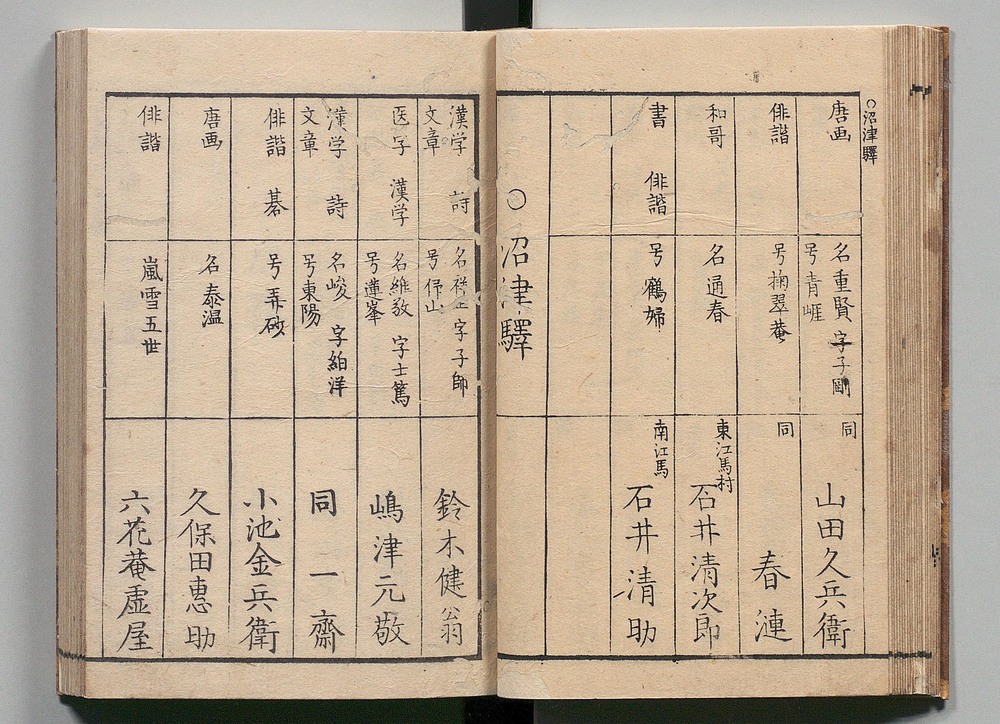 ○沼津驛
唐画
名重賢 字子剛
号青崕
同
山田久兵衛
俳諧
号掬翠菴
同
春漣
和哥
名通春
東江馬村
石井清次郎
書 俳諧
号鶴婦
南江馬
石井清助
○沼津驛
漢学 詩
文章
字子師
鈴木健翁
医学 漢学
名維敦 字士篤
号蓮峯
嶋津元敬
漢学 詩
文章
名峻 字絈洋
号東陽
同一齋
俳諧 碁
号弄砍
小池金兵衛
唐画
名泰温
久保田惠助
俳諧
嵐雪五世
六花菴虚屋